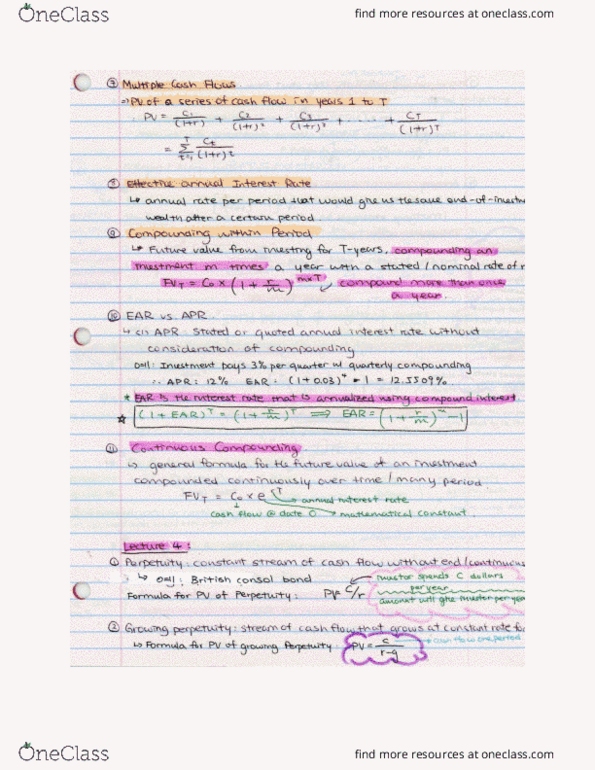 OneClass
find more resources at oneclass.com
⑦ Multiple Cash Flows
⇒ PV of a series of cash flow in years 1 to T
PV = C₁/(1+r) + C₂/(1+r)² + C₃/(1+r)³ + ..... + C_T/(1+r)^T
= Σ_{t=1}^{T} C_t/(1+r)^t
⑧ Effective annual Interest Rate
↳ annual rate per period that would give us the same end-of-investm
wealth after a certain period
⑨ Compounding within Period
↳ Future value from investing for T-years, compounding an
investment m times a year with a stated/nominal rate of r
FV_T = C₀ × (1 + r/m)^{m×T} compound more than once
a year.
⑩ EAR vs. APR
↳ (1) APR: Stated or quoted annual interest rate without
consideration of compounding
Investment pays 3% per quarter w/ quarterly compounding
∴ APR: 12% EAR: (1+0.03)⁴ - 1 = 12.5509%
* EAR is the interest rate that is annualized using compound interest.
☆ (1 + EAR)^T = (1 + r/m)^T ⟹ EAR = (1 + r/m)^m - 1
⑪ Continuous Compounding
↳ general formula for the future value of an investment
compounded continuously over time/many period.
FV_T = C₀ × e^{rT} → annual interest rate
cash flow @ date 0 → mathematical constant
Lecture 4:
① Perpetuity: constant stream of cash flow without end/continuous
↳ British consol bond
investor spends C dollars
per year
Formula for PV of Perpetuity: PV = C/r
amount will give investor per year
② Growing perpetuity: stream of cash flow that grows at constant rate fo
↳ Formula for PV of growing Perpetuity: PV = C/(r-g) cash flow one period
OneClass
find more resources at oneclass.com